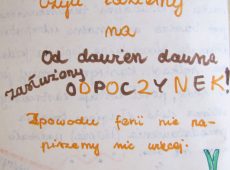 Czyli
na
Od dawien dawna
zasłużony
ODPOCZYNEK!
Zpowodu ferii nie na-
piszemy nic więcej.